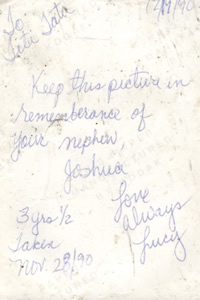 To
Titi Tata
12/19/90
Keep this picture in
rememberance of
your nephew,
Joshua
3 yrs 1/2
Taken
Nov. 28/90
Love
Always
Lucy